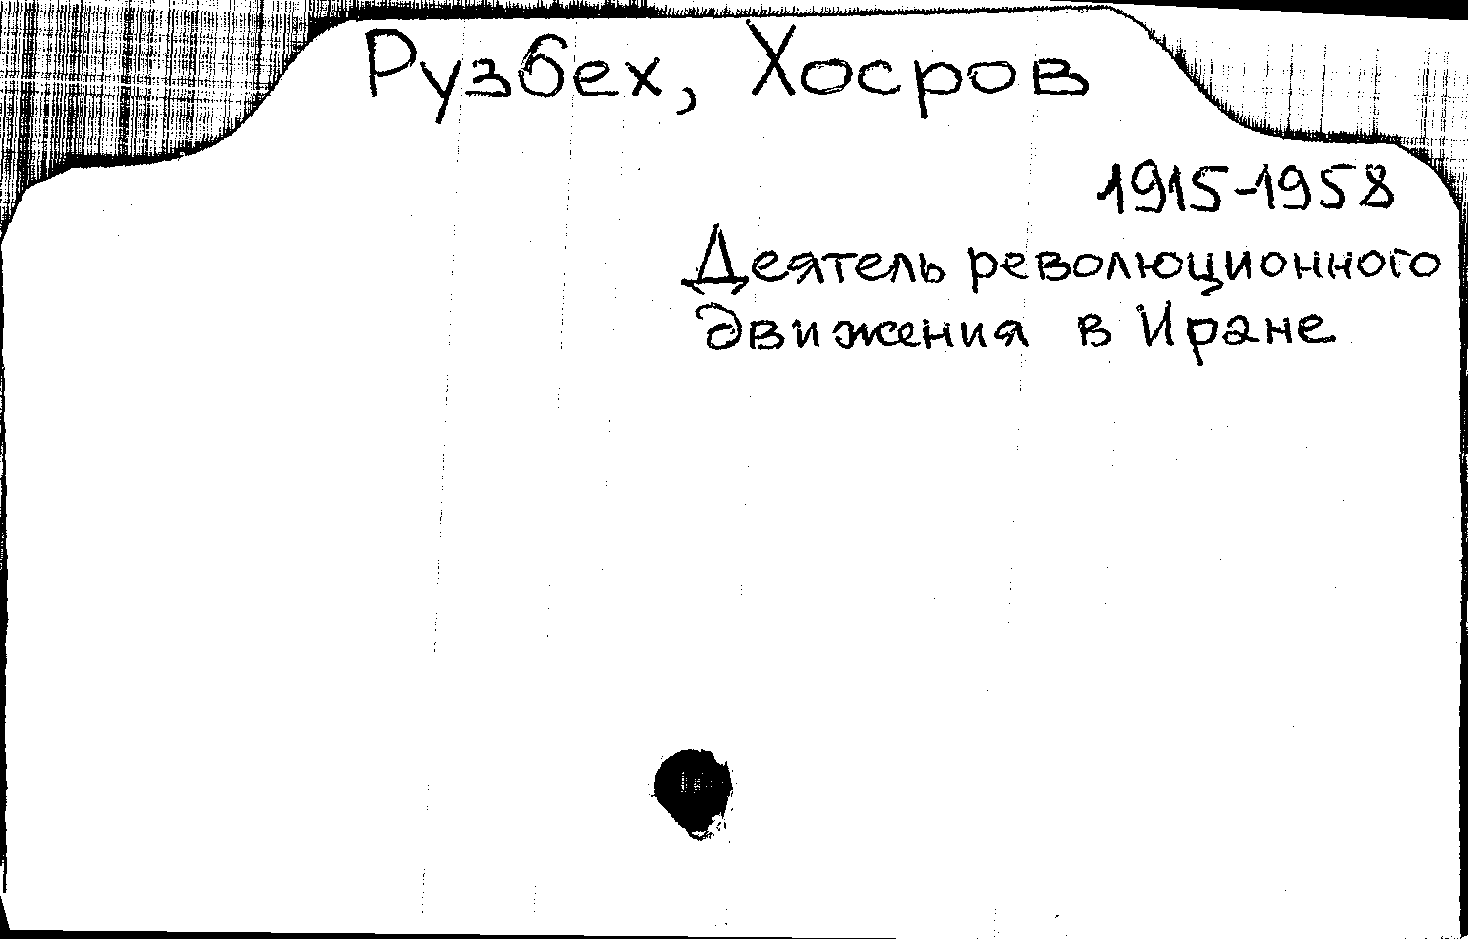 Рузбех, Хосров
1915-1958
Деятель революционного
движения в Иране